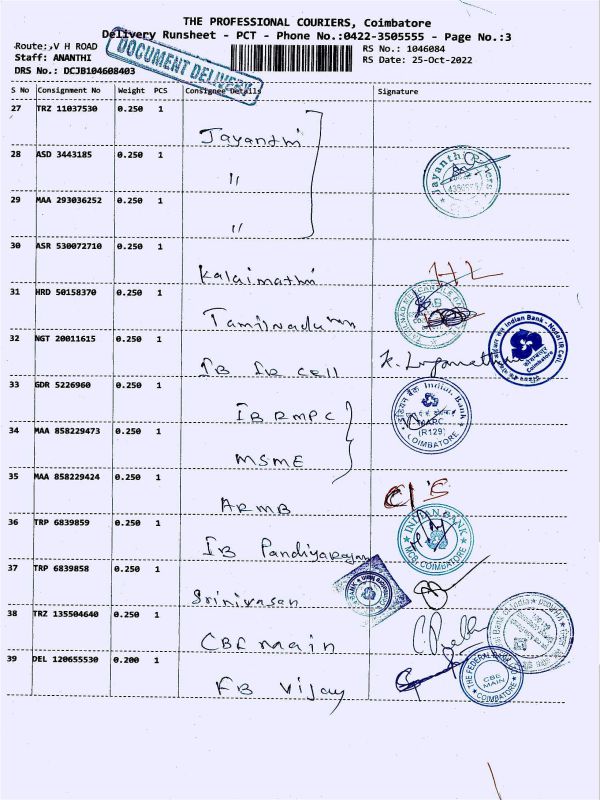 THE PROFESSIONAL COURIERS, Coimbatore
Delivery Runsheet - PCT - Phone No.:0422-3505555 - Page No.:3
Route:,V H ROAD
RS No.: 1046084
Staff: ANANTHI
RS Date: 25-Oct-2022
DRS No.: DCJB104608403
DOCUMENT DELIVERY
S No Consignment No Weight PCS Consignee Details Signature
27 TRZ 11037530 0.250 1
Jayanthi
28 ASD 3443185 0.250 1
"
29 MAA 293036252 0.250 1
"
30 ASR 530072710 0.250 1
Kalaimathi
31 HRD 50158370 0.250 1
Tamilnadu
32 NGT 20011615 0.250 1
IB IR Cell
33 GDR 5226960 0.250 1
IB RMPC
34 MAA 858229473 0.250 1
MSME
35 MAA 858229424 0.250 1
ARMB
36 TRP 6839859 0.250 1
IB Pandiyarajan
37 TRP 6839858 0.250 1
Srinivasan
38 TRZ 135504640 0.250 1
CBE Main
39 DEL 120655530 0.200 1
FB Vijay
Indian Bank
COIMBATORE
(R129)
INDIAN BANK
MCB, COIMBATORE
THE FEDERAL BANK
CBE
MAIN
COIMBATORE